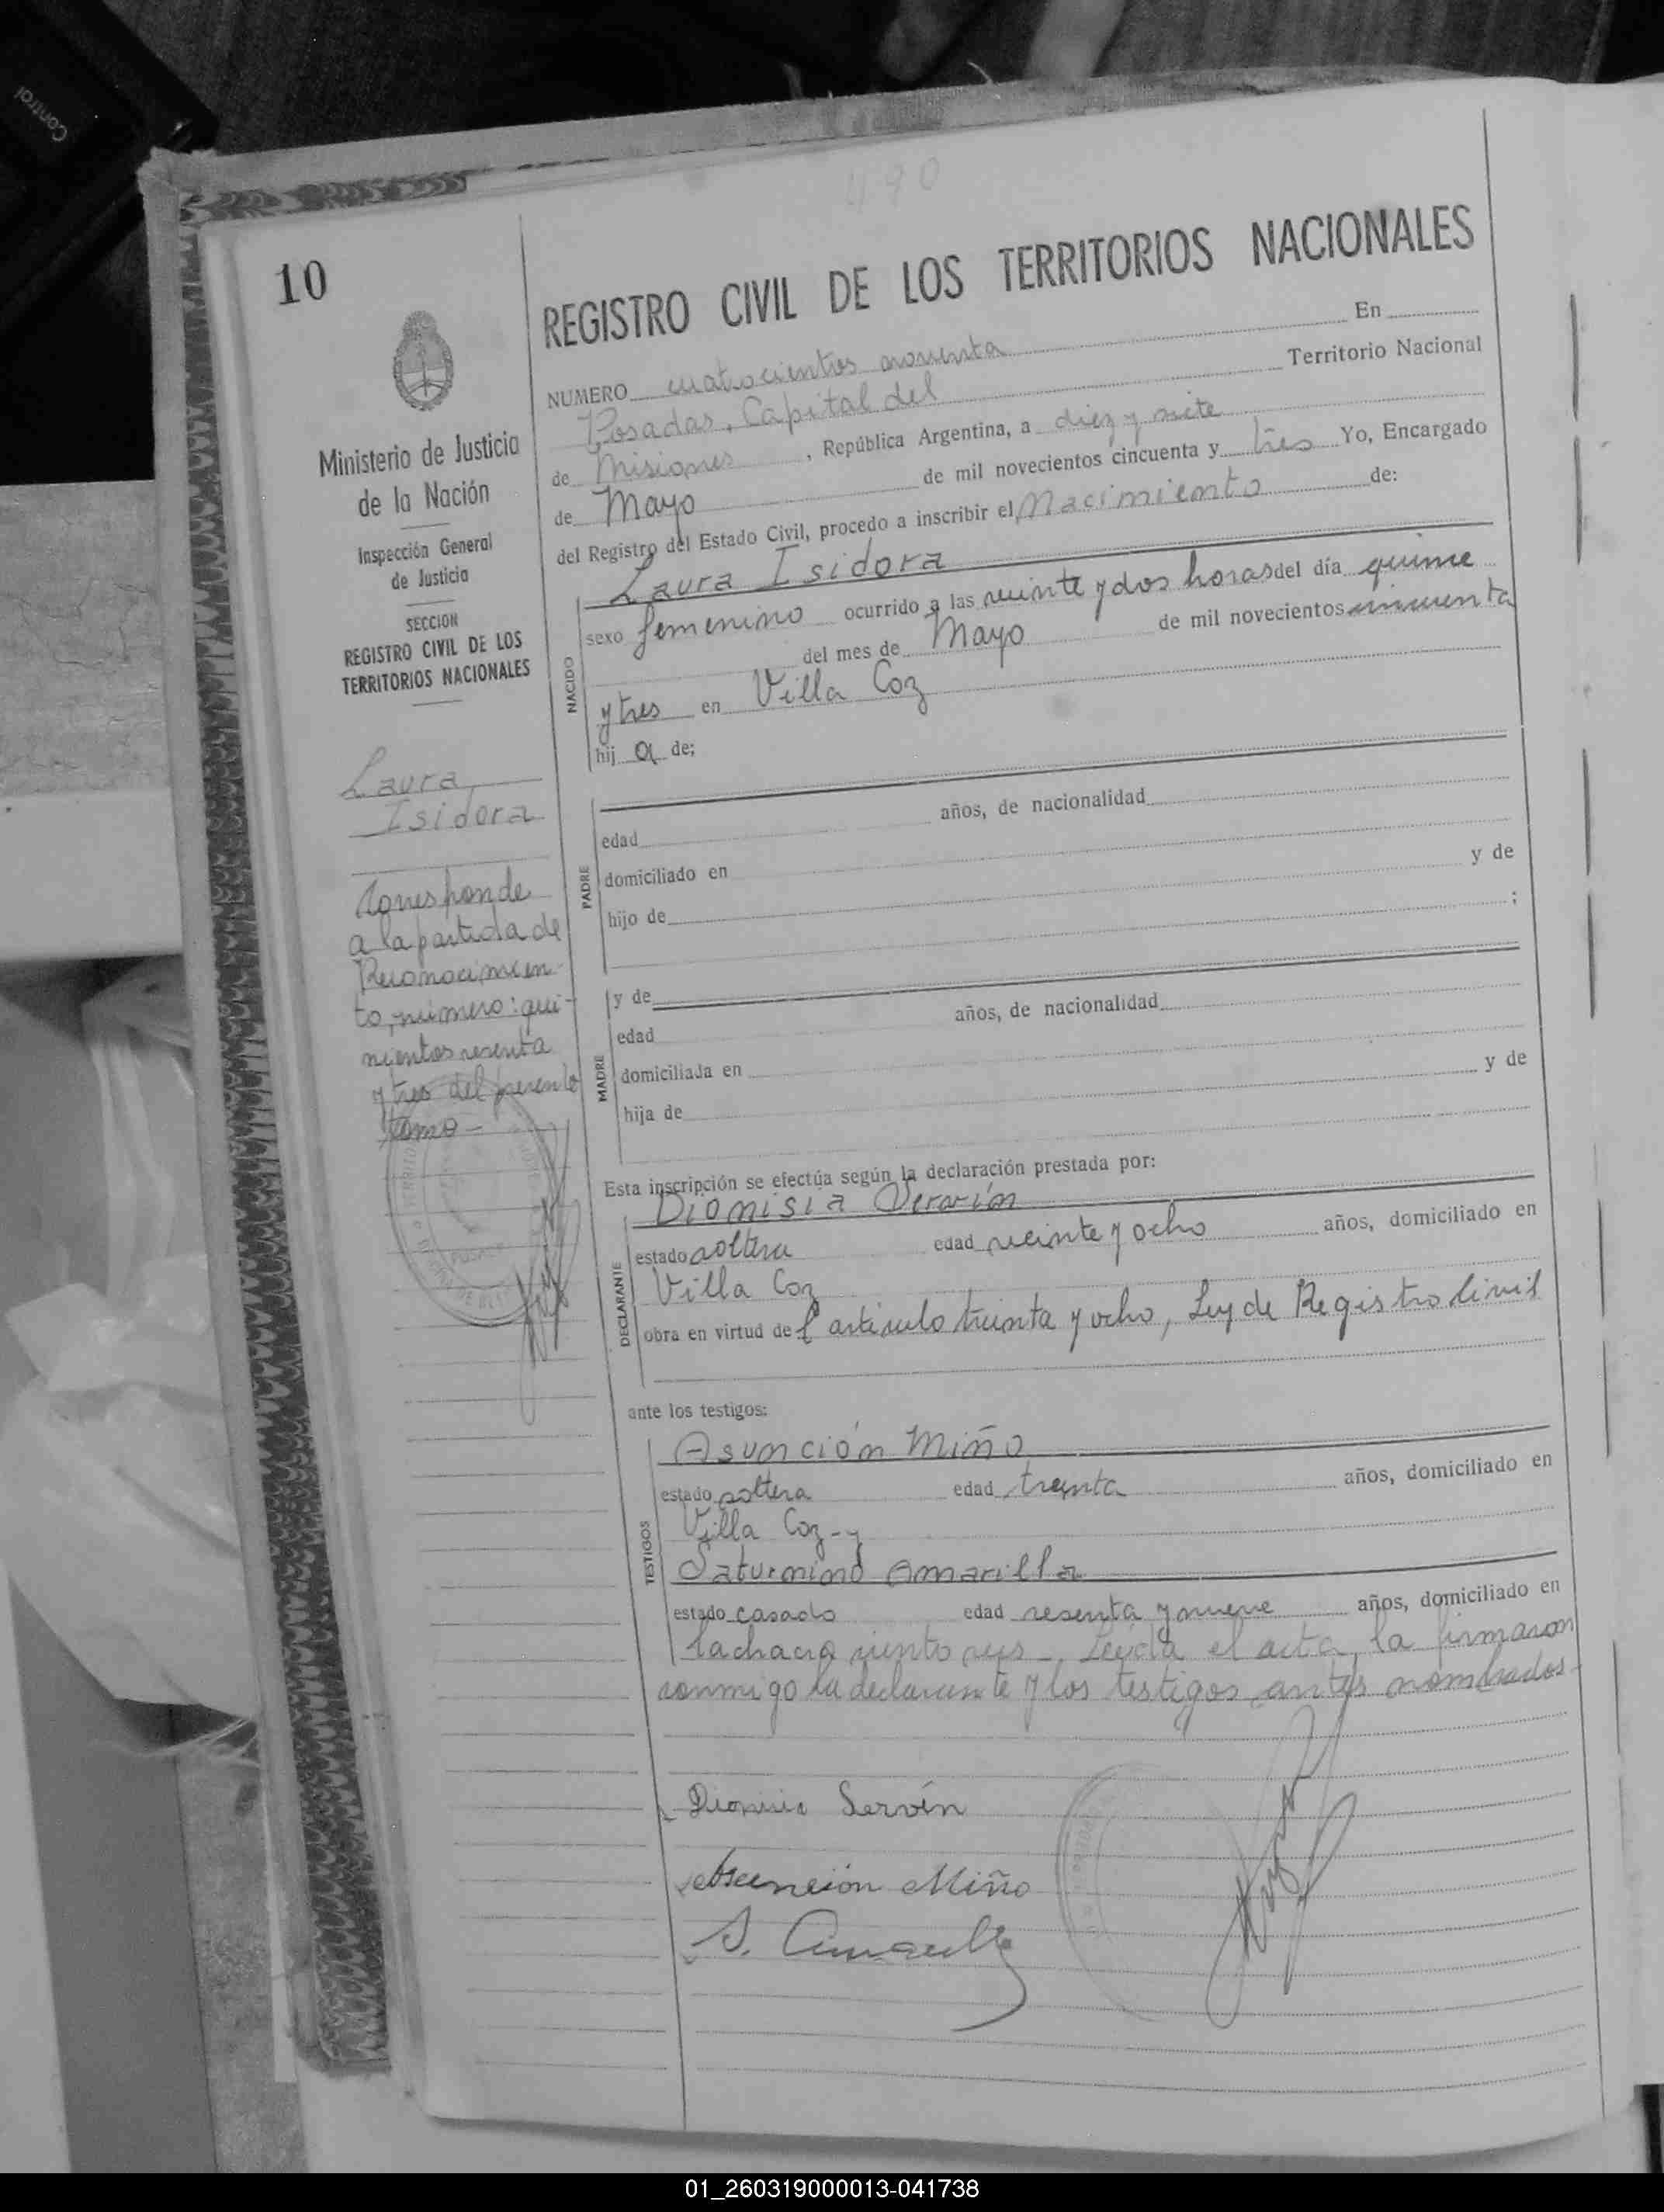 Control
490
10
REGISTRO CIVIL DE LOS TERRITORIOS NACIONALES
Ministerio de Justicia
de la Nación
Inspección General
de Justicia
SECCION
REGISTRO CIVIL DE LOS
TERRITORIOS NACIONALES
Laura
Isidora
Corresponde
a la partida de
Reconocimien-
to, número: qui-
nientos sesenta
y tres del presente
tomo -
NUMERO cuatrocientos noventa En
Posadas, Capital del Territorio Nacional
de Misiones, República Argentina, a diez y siete
de Mayo de mil novecientos cincuenta y tres Yo, Encargado
del Registro del Estado Civil, procedo a inscribir el Nacimiento de:
NACIDO
Laura Isidora
sexo femenino ocurrido a las veinte y dos horas del día quince
del mes de Mayo de mil novecientos cincuenta
y tres en Villa Coz
hij a de;
PADRE
edad años, de nacionalidad
domiciliado en
hijo de y de
;
MADRE
y de
edad años, de nacionalidad
domiciliada en
hija de y de
Esta inscripción se efectúa según la declaración prestada por:
DECLARANTE
Dionisia Servín
estado soltera edad veinte y ocho años, domiciliado en
Villa Coz
obra en virtud del artículo treinta y ocho, Ley de Registro Civil
ante los testigos:
TESTIGOS
Asunción Miño
estado soltera edad treinta años, domiciliado en
Villa Coz - y
Saturnino Amarilla
estado casado edad sesenta y nueve años, domiciliado en
la chacra ciento seis -. Leída el acta, la firmaron
conmigo la declarante y los testigos antes nombrados -
Dionisia Servín
Asunción Miño
S. Amarilla
01_260319000013-041738